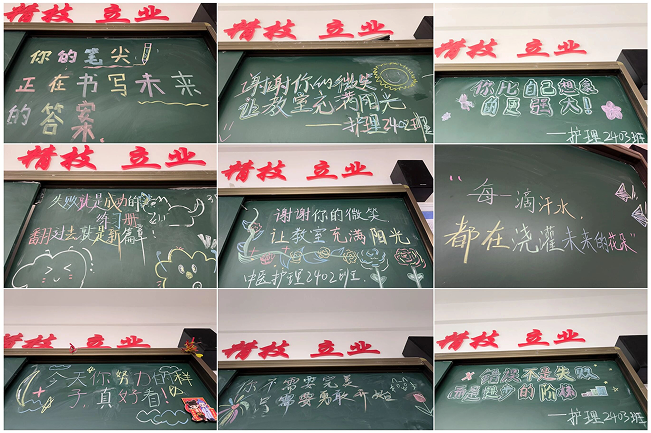 精技 立业
你的笔尖
正在书写未来
的答案
精技 立业
谢谢你们的微笑
让教室充满阳光
——护理2402班
精技 立业
你比自己想象
的更强大!
——护理2403班
精技 立业
失败就是成功的
练习册
翻过去就是新篇章
精技 立业
谢谢你的微笑
让教室充满阳光
中医护理2402班
“每一滴汗水,
都在浇灌未来的花朵”
精技 立业
今天你努力的样
子真好看!
精技 立业
你不需要完美
只需要勇敢开始
精技 立业
错误不是失败
而是进步的阶梯
——护理2403班